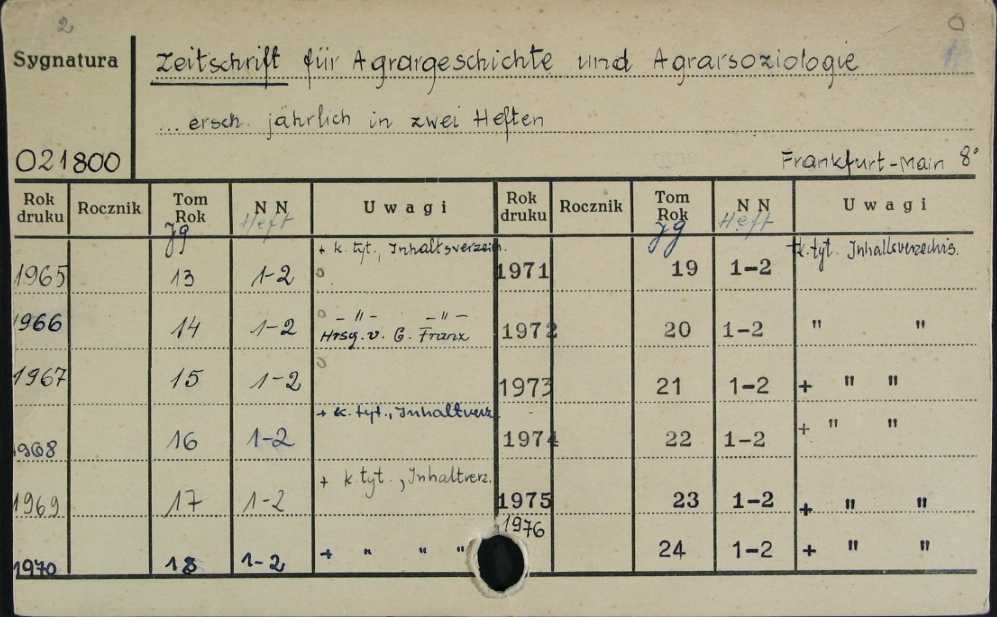 2 0
Sygnatura Zeitschrift für Agrargeschichte und Agrarsoziologie
... ersch. jährlich in zwei Heften
021800 Frankfurt-Main 8°
Rok druku Rocznik Tom Rok Jg N N Heft Uwagi Rok druku Rocznik Tom Rok Jg N N Heft Uwagi
1965 13 1-2 + k. tyt., Inhaltsverzeich. 1971 19 1-2 +k.tyt. Inhaltsverzechis.
1966 14 1-2 – " – – " – Hrsg. v. G. Franz 1972 20 1-2 " "
1967 15 1-2 1973 21 1-2 + " "
1968 16 1-2 + k. tyt., Inhaltverz. 1974 22 1-2 + " "
1969 17 1-2 + k. tyt., Inhaltverz. 1975 23 1-2 + " "
1970 18 1-2 + " " " 1976 24 1-2 + " "